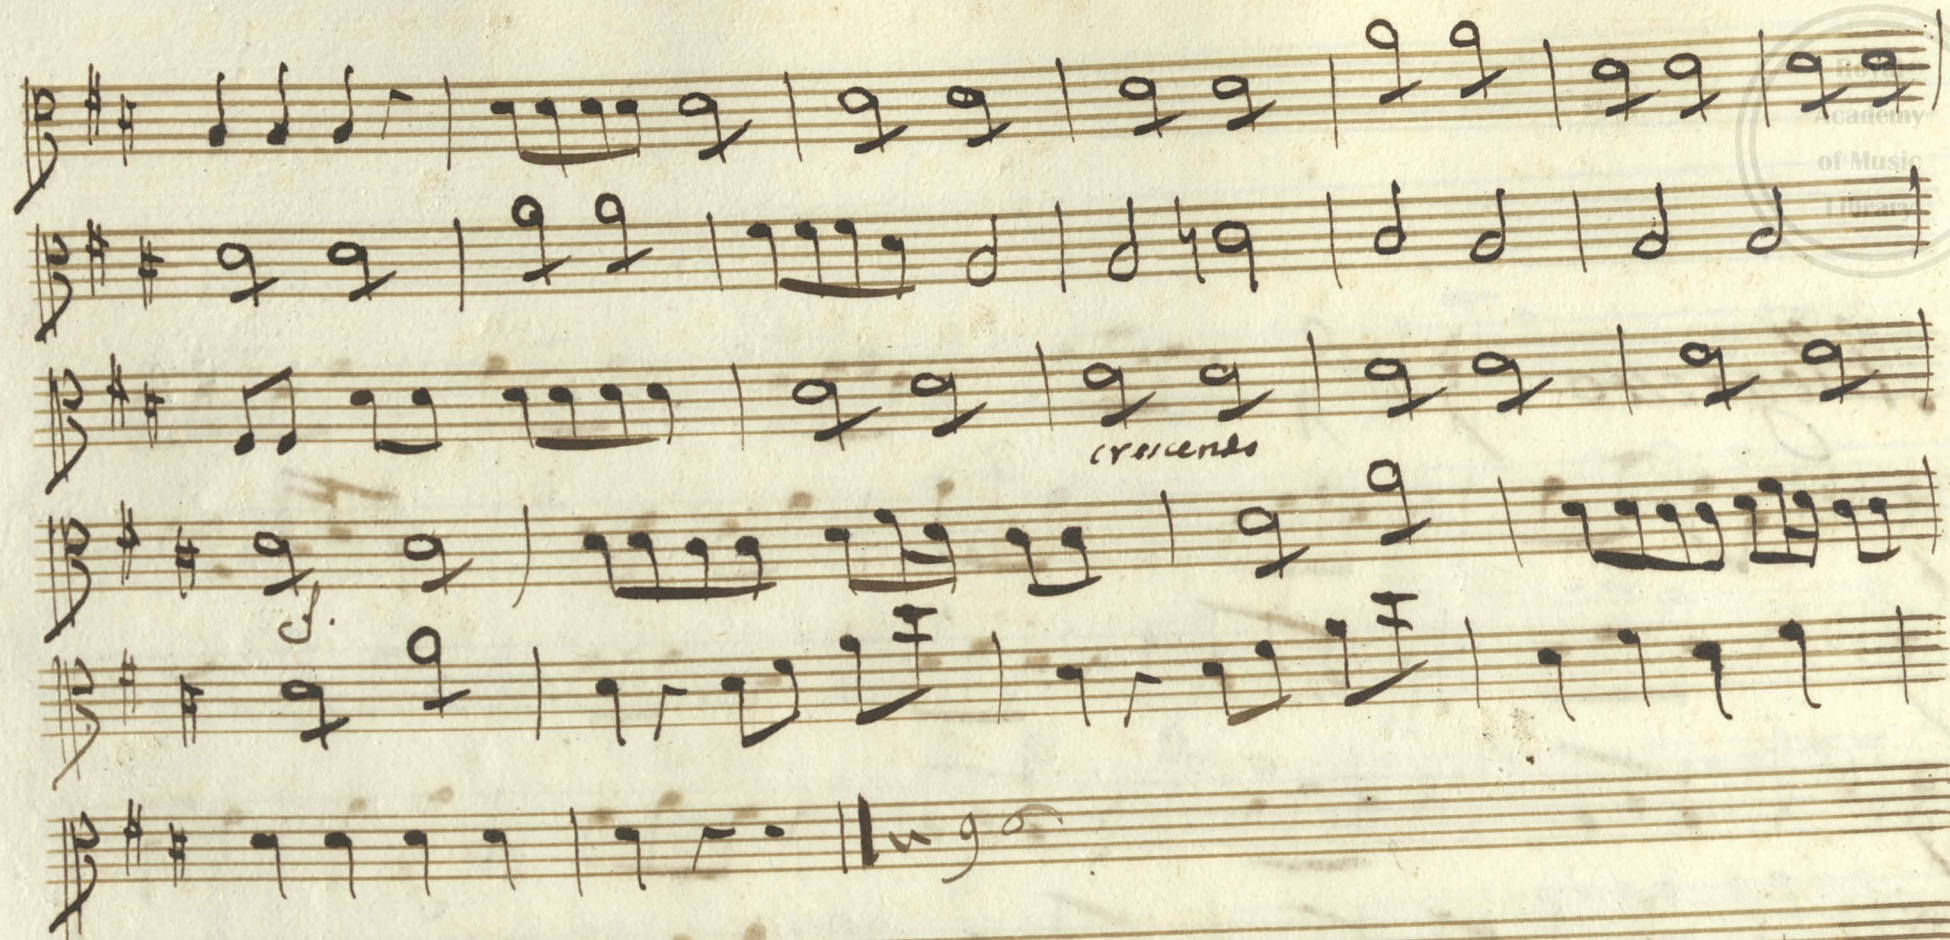 Royal
Academy
of Music
Library
crescendo